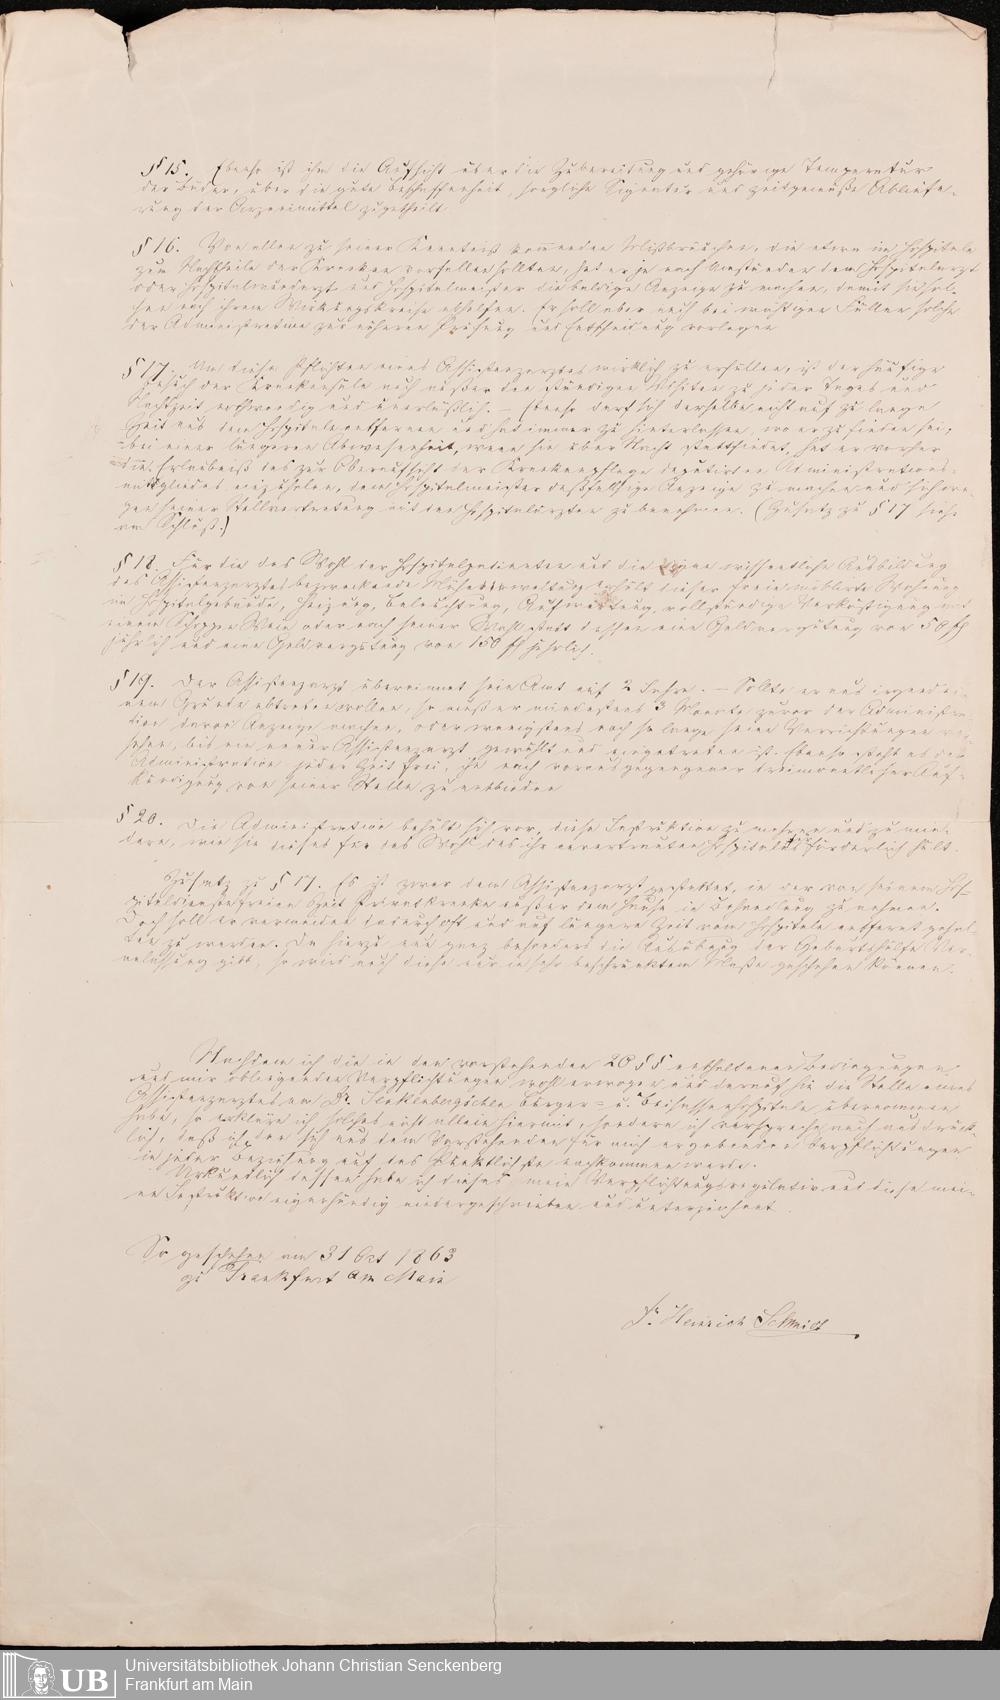 § 15. Ebenso ist ihm die Aufsicht über die Zubereitung und gehörige Temperatur
der Bäder, über die gute Beschaffenheit, sorgliche Signatur und zeitgemäße Abliefe-
rung der Arzneimittel zugetheilt.
§ 16. Von allen zu seiner Kenntniß kommenden Mißbräuchen, die etwa im Hospitale
zum Nachtheile der Kranken vorfallen sollten, hat er je nach Umständen dem Hospitalarzt
oder Hospitalwundarzt und Hospitalmeister die baldige Anzeige zu machen, damit sie sol-
chen nach ihrem Wirkungskreise abhelfen. Er soll aber auch bei wichtigen Fällen solche
der Administration zur näheren Prüfung und Entscheidung vorlegen
§ 17. Um diese Pflichten eines Assistenzarztes wirklich zu erfüllen, ist der häufige
Besuch der Krankensäle auch außer den ständigen Visiten zu jeder Tages und
Nachtzeit nothwendig und unerläßlich. – Ebenso darf sich derselbe nicht auf zu lange
Zeit aus dem Hospitale entfernen und hat immer zu hinterlassen, wo er zu finden sei;
bei einer längeren Abwesenheit, wenn sie über Nacht stattfindet, hat er vorher
die Erlaubniß des zur Oberaufsicht der Krankenpflege deputirten Administrations-
mitgliedes einzuholen, dem Hospitalmeister deßfallsige Anzeige zu machen und sich we-
gen seiner Stellvertretung mit den Hospitalärzten zu benehmen. (Zusatz zu § 17 siehe
am Schluß.)
§ 18. Für die das Wohl der Hospitalpatienten und die eigene wissentliche Ausbildung
des Assistenzarztes bezweckende Mühewaltung erhält dieser freie möblirte Wohnung
im Hospitalgebäude, Heizung, Beleuchtung, Aufwartung, vollständige Verköstigung mit
einem Schoppen Wein oder nach seiner Wahl statt dessen eine Geldvergütung von 50 fl
jährlich und eine Geldvergütung von 150 fl jährlich.
§ 19. Der Assistenzarzt übernimmt sein Amt auf 2 Jahre. – Sollte er aus irgend ei-
nem Grunde abtreten wollen, so muß er mindestens 3 Monate zuvor der Administra-
tion davon Anzeige machen, oder wenigstens noch so lange seine Verrichtungen ver-
sehen, bis ein neuer Assistenzarzt gewählt und eingetreten ist. Ebenso steht es der
Administration jeder Zeit frei, ihn nach vorausgegangener dreimonatlicher Auf-
kündigung von seiner Stelle zu entbinden
§ 20. Die Administration behält sich vor, diese Instruktion zu mehren und zu min-
dern, wie sie dieses für das Wohl des ihr anvertrauten Hospitales für förderlich hält.
Zusatz zu § 17. Es ist zwar dem Assistenzarzt gestattet, in der von seinem Hos-
pitaldienste freien Zeit Privatkranke außer dem Hause in Behandlung zu nehmen.
Doch soll er vermeiden dadurch oft und auf längere Zeit vom Hospitale entfernt gehal-
ten zu werden. Da hierzu nun ganz besonders die Ausübung der Geburtshülfe Ver-
anlassung gibt, so wird auch diese nur in sehr beschränktem Maße geschehen können.
Nachdem ich die in den vorstehenden 20 §§ enthaltenen Bedingungen
und mir obliegenden Verpflichtungen wohl erwogen und darauf hin die Stelle eines
Assistenzarztes am Dr. Senkenbergschen Bürger= u. Beisassenhospitale übernommen
habe, so erkläre ich solches nicht allein hiermit, sondern ich verspreche auch ausdrück-
lich, daß ich den sich aus dem Vorstehenden für mich ergebenden Verpflichtungen
in jeder Beziehung auf das Pünktlichste nachkommen werde.
Urkundlich dessen habe ich dieses mein Verpflichtungsregulativ und diese mei-
ne Instruktion eigenhändig niedergeschrieben und unterzeichnet.
So geschehen am 31 Oct 1863
zu Frankfurt am Main
Dr. Heinrich Schmidt
UB
Universitätsbibliothek Johann Christian Senckenberg
Frankfurt am Main